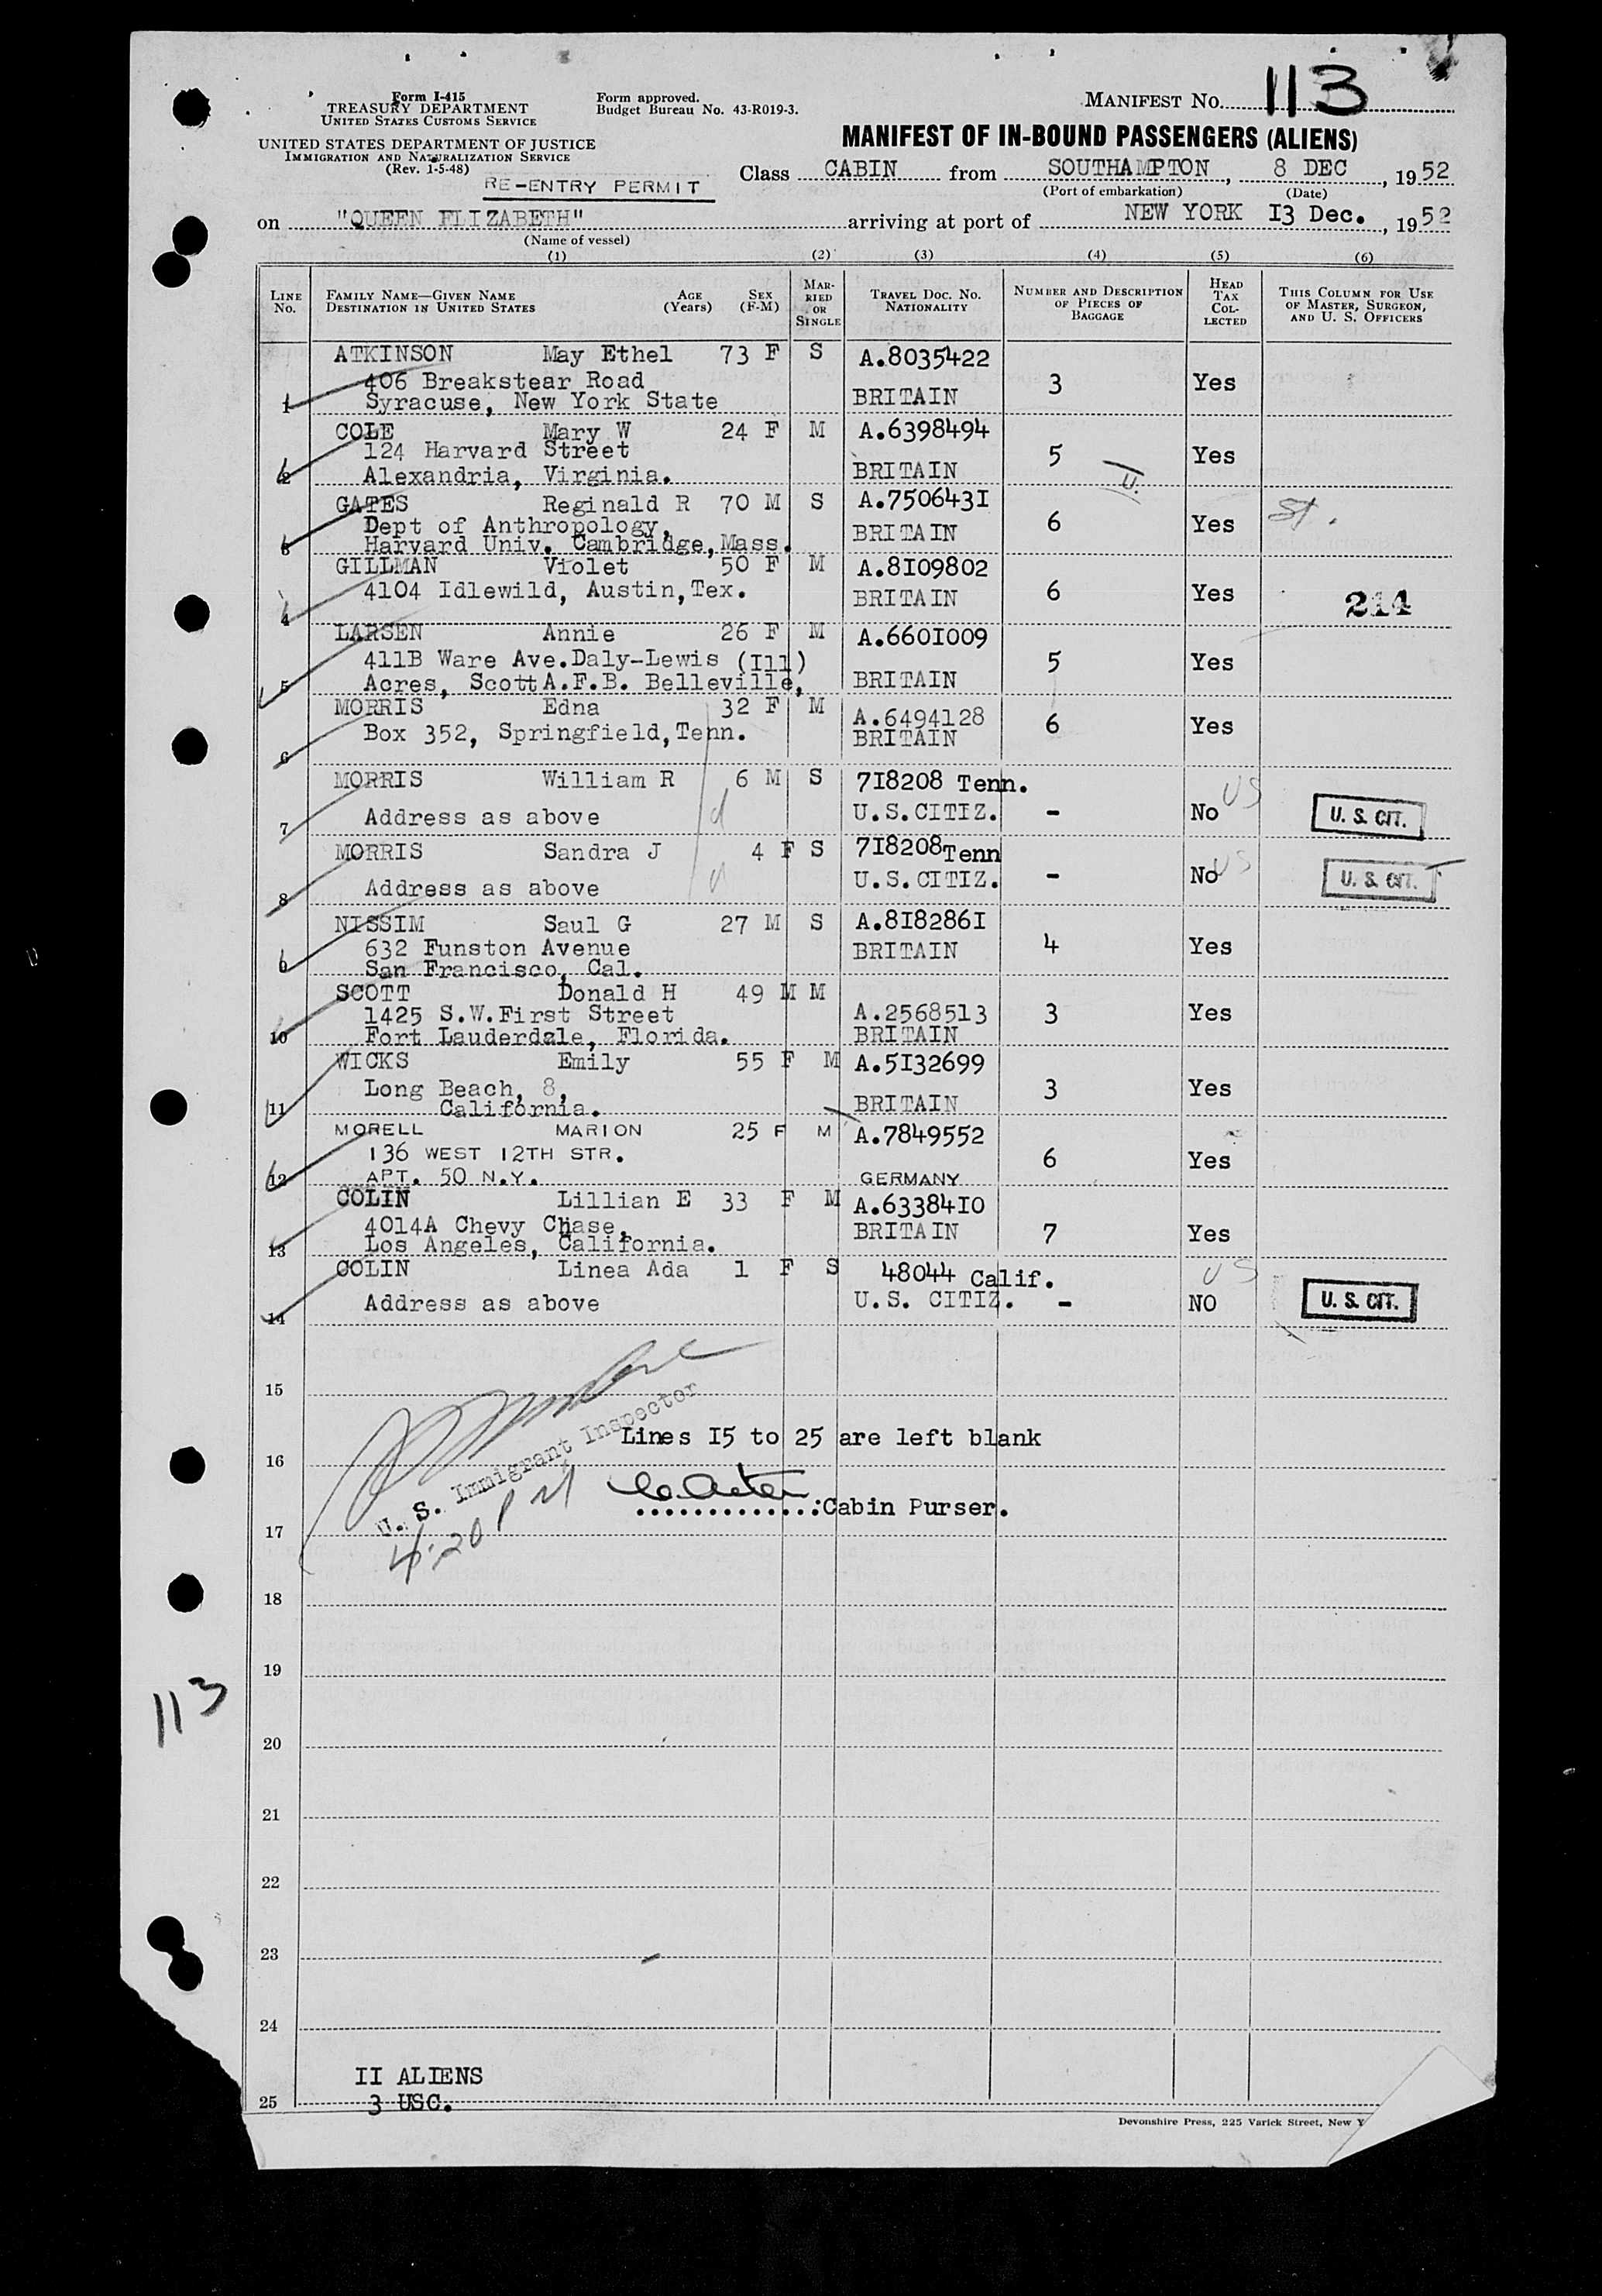 Form I-415
TREASURY DEPARTMENT
UNITED STATES CUSTOMS SERVICE
UNITED STATES DEPARTMENT OF JUSTICE
IMMIGRATION AND NATURALIZATION SERVICE
(Rev. 1-5-48)
RE-ENTRY PERMIT
Form approved.
Budget Bureau No. 43-R019-3.
MANIFEST NO. 113
MANIFEST OF IN-BOUND PASSENGERS (ALIENS)
Class CABIN from SOUTHAMPTON, 8 DEC, 1952
(Port of embarkation) (Date)
on "QUEEN ELIZABETH" arriving at port of NEW YORK I3 Dec., 1952
(Name of vessel)
(1) (2) (3) (4) (5) (6)
LINE No. FAMILY NAME—GIVEN NAME DESTINATION IN UNITED STATES AGE (Years) SEX (F-M) MARRIED OR SINGLE TRAVEL DOC. NO. NATIONALITY NUMBER AND DESCRIPTION OF PIECES OF BAGGAGE HEAD TAX COLLECTED THIS COLUMN FOR USE OF MASTER, SURGEON, AND U. S. OFFICERS
ATKINSON May Ethel 73 F S A.8035422
406 Breakstear Road 3 Yes
1 Syracuse, New York State BRITAIN
COLE Mary W 24 F M A.6398494
124 Harvard Street 5 Yes
2 Alexandria, Virginia. BRITAIN
GATES Reginald R 70 M S A.750643I
Dept of Anthropology, BRITAIN 6 Yes St.
3 Harvard Univ. Cambridge, Mass.
GILLMAN Violet 50 F M A.8I09802
4104 Idlewild, Austin,Tex. BRITAIN 6 Yes 214
4
LARSEN Annie 26 F M A.660I009
411B Ware Ave.Daly-Lewis (Ill) 5 Yes
5 Acres, Scott A.F.B. Belleville, BRITAIN
MORRIS Edna 32 F M A.6494128
Box 352, Springfield,Tenn. BRITAIN 6 Yes
6
MORRIS William R 6 M S 7I8208 Tenn.
7 Address as above U.S.CITIZ. - No US U. S. CIT.
MORRIS Sandra J 4 F S 7I8208 Tenn
8 Address as above U.S.CITIZ. - No US U. S. CIT.
NISSIM Saul G 27 M S A.8I8286I
632 Funston Avenue BRITAIN 4 Yes
9 San Francisco, Cal.
SCOTT Donald H 49 M M
1425 S.W.First Street A.2568513 3 Yes
10 Fort Lauderdale, Florida. BRITAIN
WICKS Emily 55 F M A.5I32699
Long Beach, 8, 3 Yes
11 California. BRITAIN
MORELL MARION 25 F M A.7849552
136 WEST 12TH STR. 6 Yes
12 APT. 50 N.Y. GERMANY
COLIN Lillian E 33 F M A.63384I0
4014A Chevy Chase, BRITAIN 7 Yes
13 Los Angeles, California.
COLIN Linea Ada 1 F S 48044 Calif. US
14 Address as above U.S. CITIZ. - NO U. S. CIT.
15
U. S. Immigrant Inspector
Lines I5 to 25 are left blank
16
.............:Cabin Purser.
17
4:20 PM
18
19
113
20
21
22
23
24
II ALIENS
25 3 USC.
Devonshire Press, 225 Varick Street, New Y